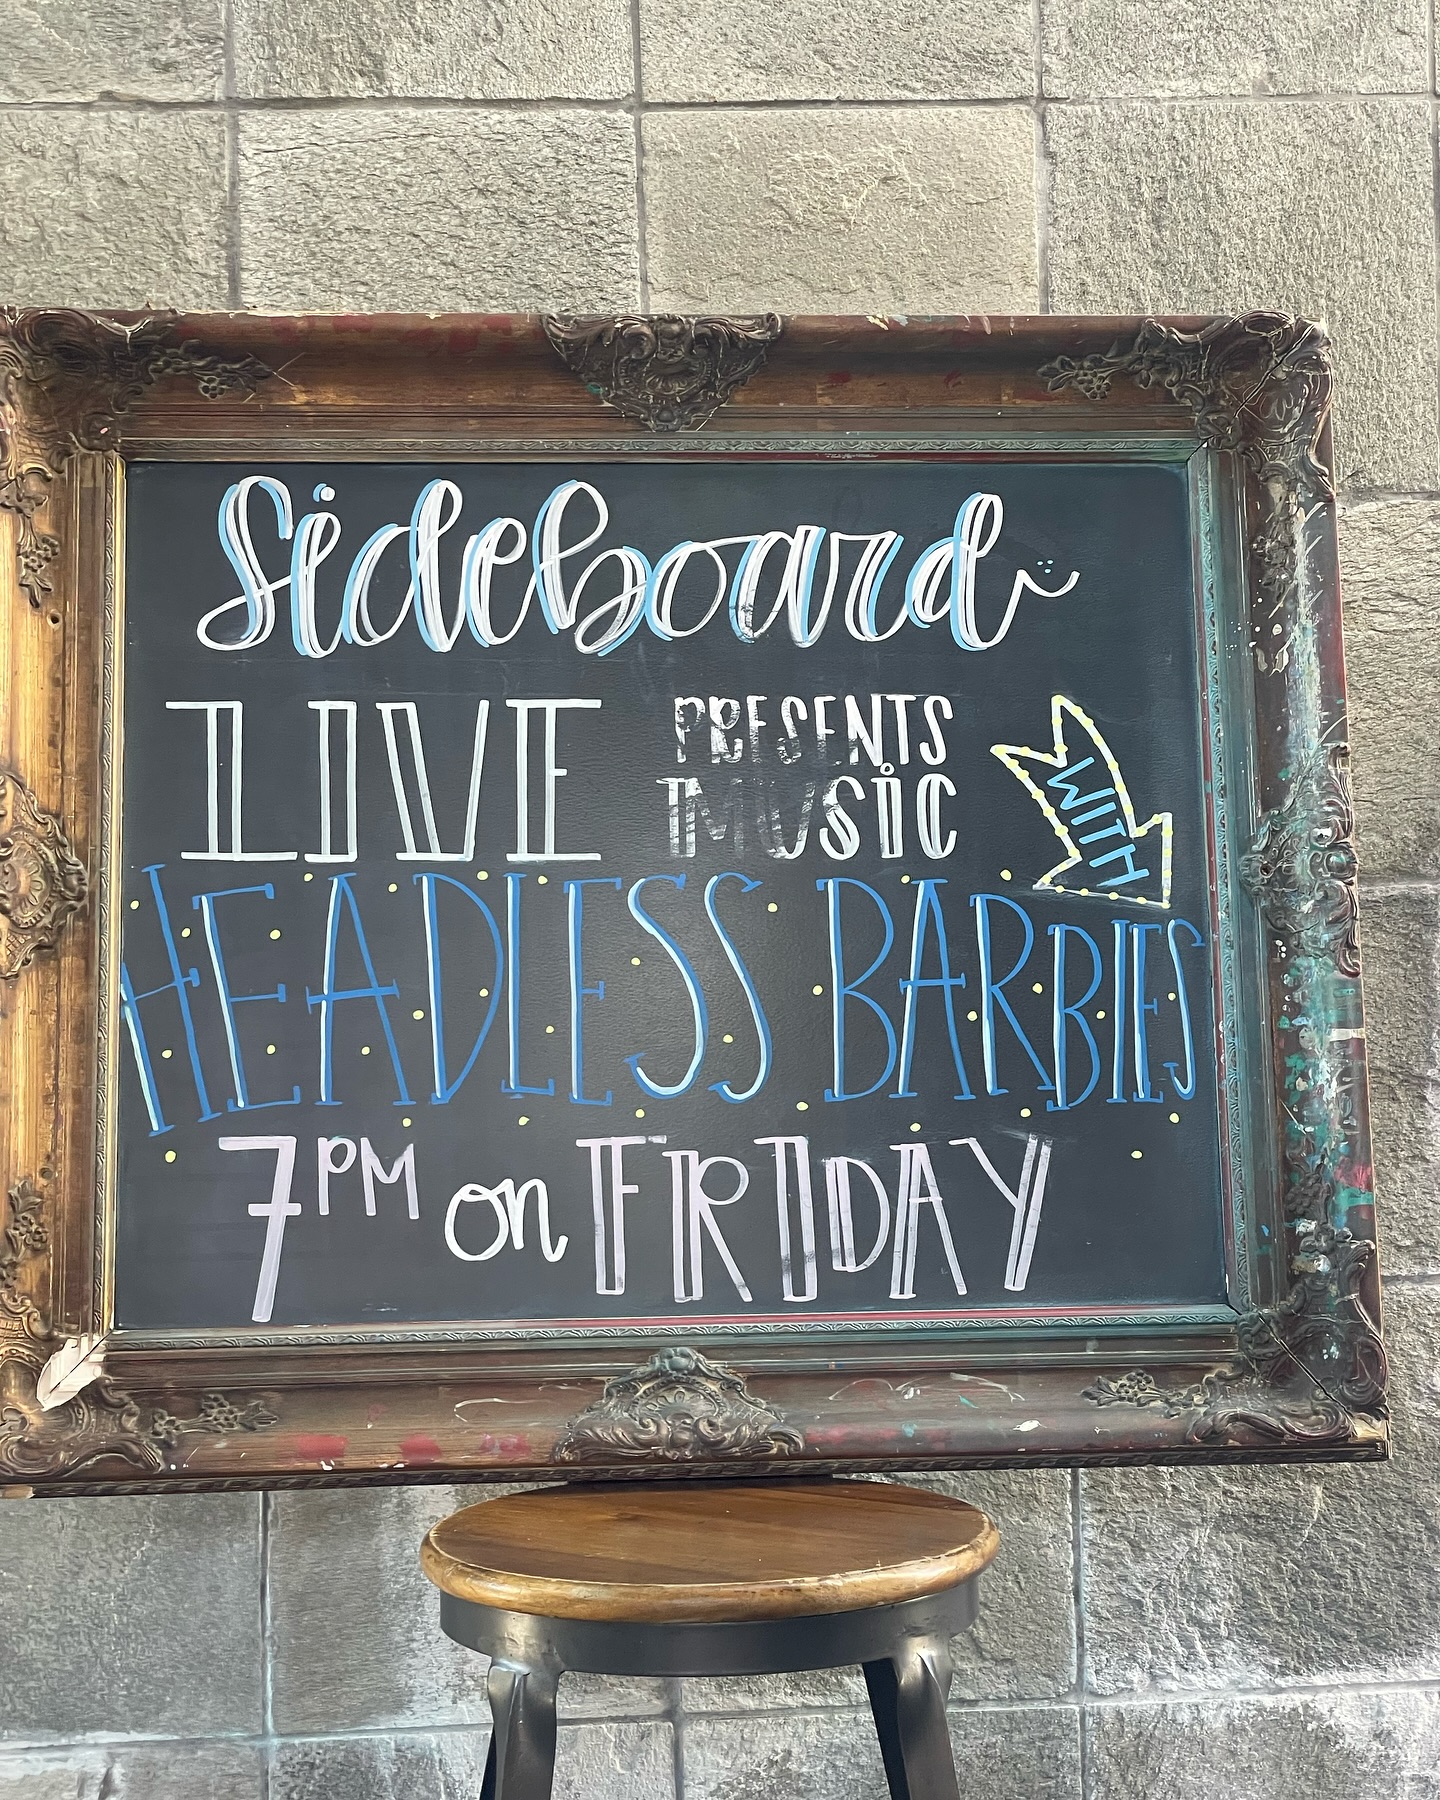 Sideboard
LIVE PRESENTS MUSIC WITH
HEADLESS BARBIES
7PM on FRIDAY